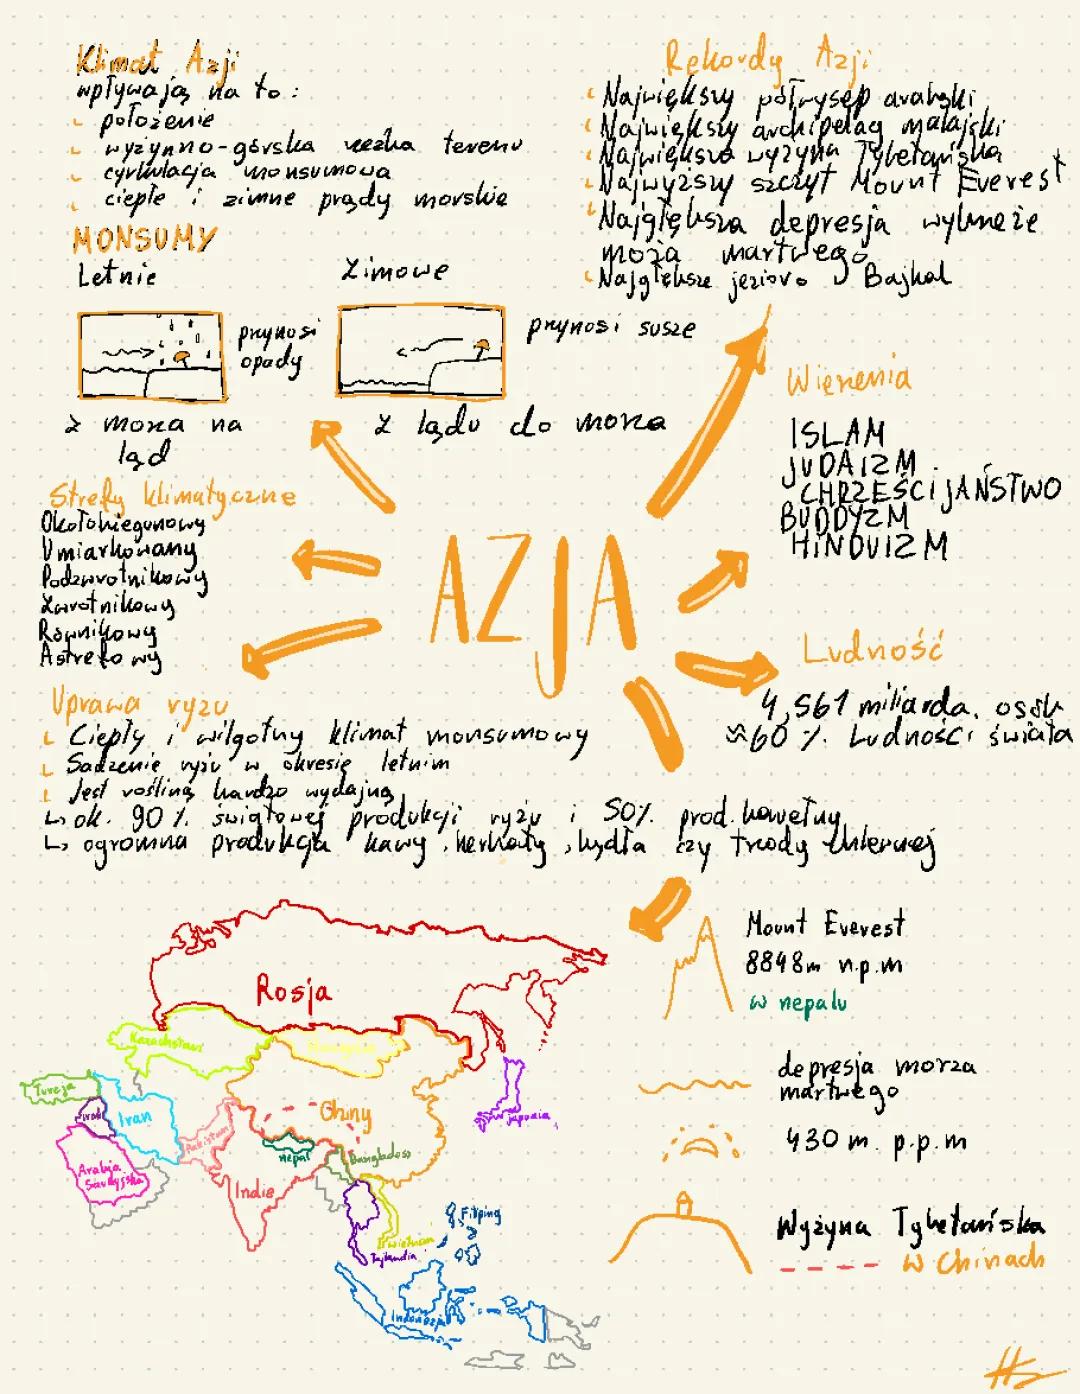 Klimat Azji
wpływają na to:
położenie
wyżynno-górska rzeźba terenu
cyrkulacja monsumowa
ciepłe i zimne prądy morskie
MONSUMY
Letnie
przynosi
opady
z morza na
ląd
Zimowe
przynosi susze
z lądu do morza
Rekordy Azji
Największy półwysep arabski
Największy archipelag malajski
Największa wyżyna Tybetańska
Najwyższy szczyt Mount Everest
Najgłębsza depresja wybrzeże
morza martwego
Najgłębsze jezioro Bajkał
Wierzenia
ISLAM
JUDAIZM
CHRZEŚCIJAŃSTWO
BUDDYZM
HINDUIZM
Strefy klimatyczne
Okołobiegunowy
Umiarkowany
Podzwrotnikowy
Zwrotnikowy
Równikowy
Astrefowy
AZJA
Ludność
4,561 miliarda osób
≈60% Ludności świata
Uprawa ryżu
Ciepły i wilgotny klimat monsumowy
Sadzenie ryżu w okresie letnim
Jest rośliną bardzo wydajną
↳ ok. 90% światowej produkcji ryżu i 50% prod. bawełny
↳ ogromna produkcja kawy, herbaty, bydła czy trzody chlewnej
Rosja
Kazachstan
Mongolia
Turcja
Irak
Iran
Pakistan
Chiny
nepal
Bangladesz
Arabia
Saudyjska
Indie
japonia
Filipiny
Wietnam
Tajlandia
Indonezja
Mount Everest
8848m n.p.m
w nepalu
depresja morza
martwego
430 m. p.p.m
Wyżyna Tybetańska
w Chinach